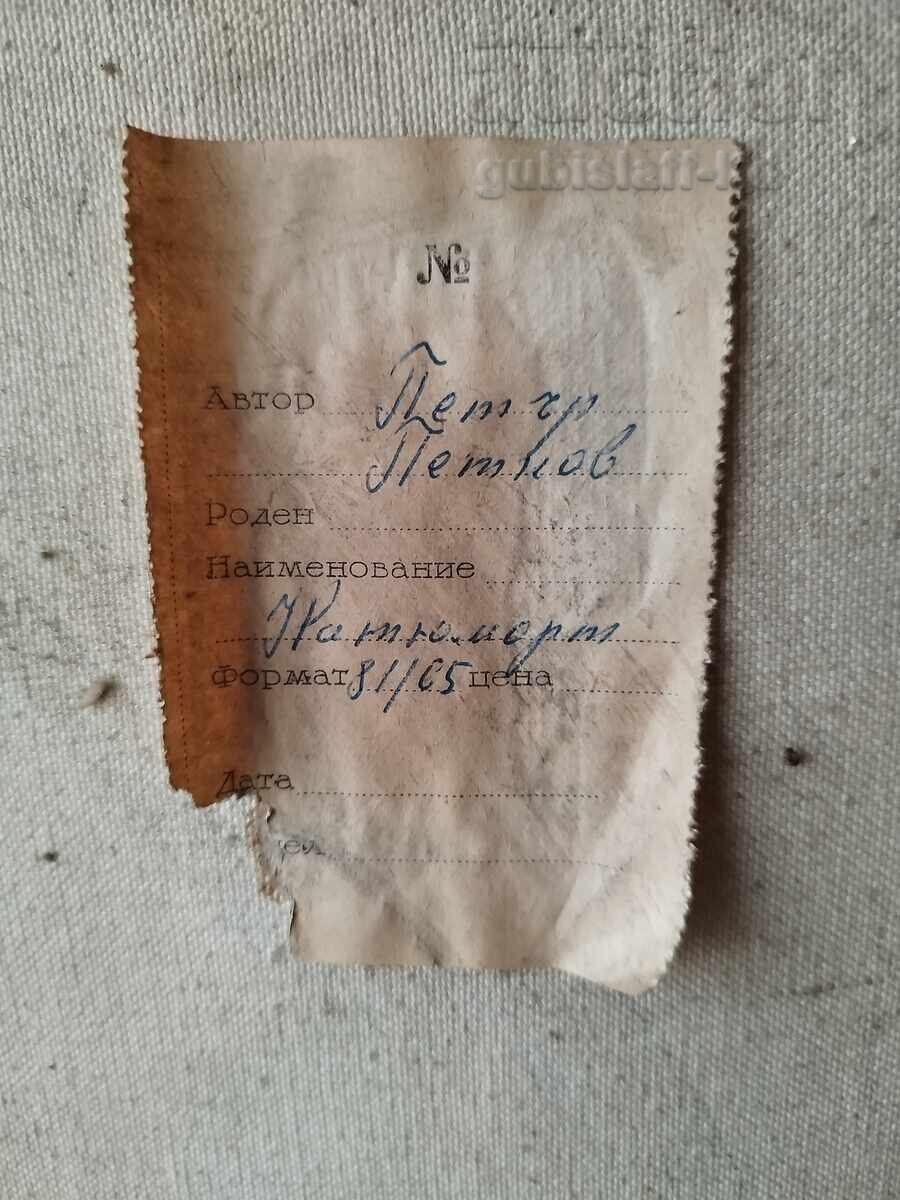 gubislaff-ku
№
Автор Петър
Петков
Роден
Наименование
Натюрморт
Формат 81/65 цена
Дата